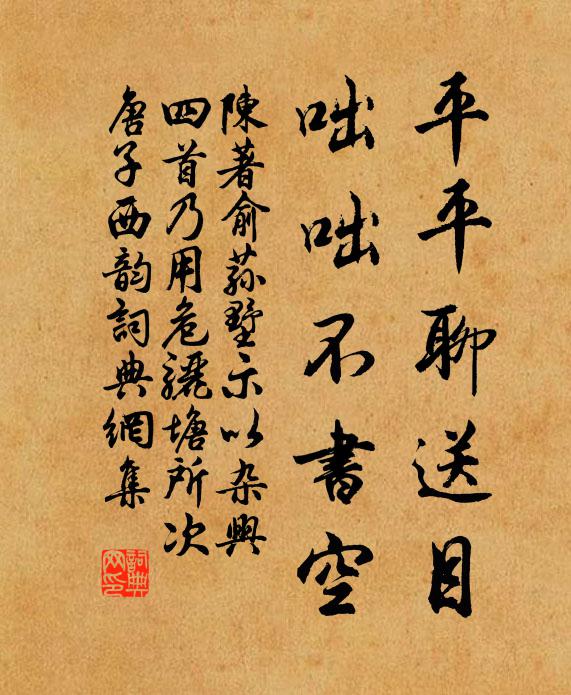 平平聊送目
咄咄不書空
陳著俞荪墅示以杂興
四首乃用危驪塘所次
唐子西韵詞典網集
詞典网印